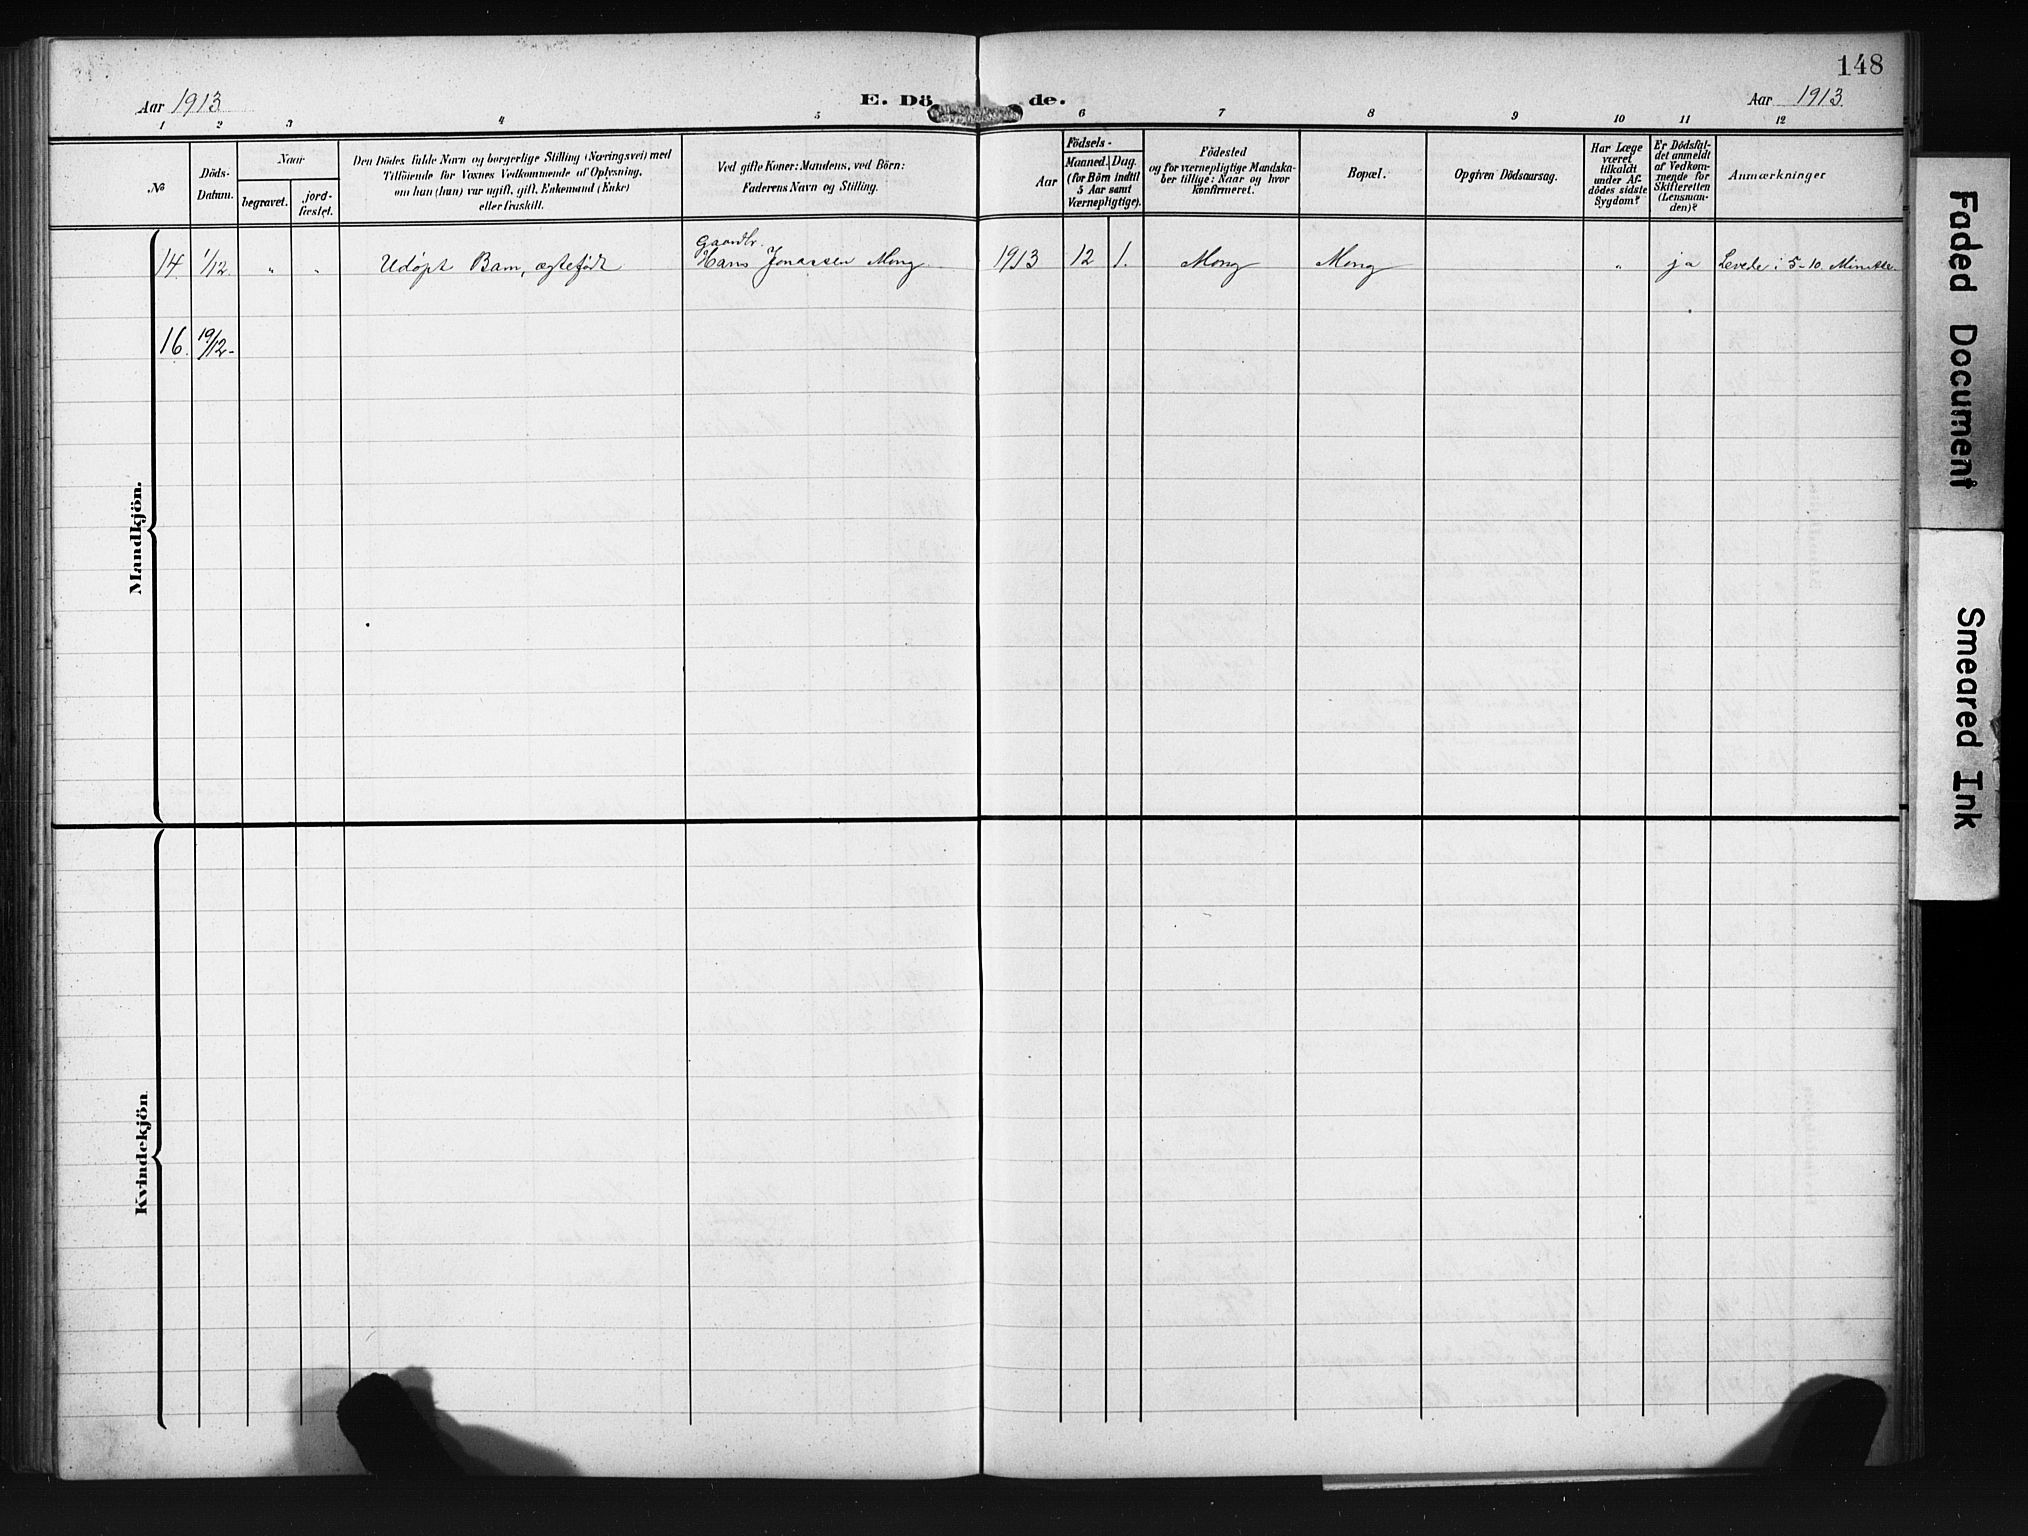 148
Aar 1913
E. Dö de.
Aar 1913
1 2 3 4 5 6 7 8 9 10 11 12
№
Döds-
Datum.
Naar
begravet.
jord-
fæstet.
Den Dödes fulde Navn og borgerlige Stilling (Næringsvei) med
Tilföiende for Voxnes Vedkommende af Oplysning,
om han (hun) var ugift, gift, Enkemand (Enke)
eller fraskilt.
Ved gifte Koner: Mandens, ved Börn:
Faderens Navn og Stilling.
Födsels-
Aar
Maaned.
Dag.
(for Börn indtil
5 Aar samt
Værnepligtige).
Födested
og for værnepligtige Mandska-
ber tillige: Naar og hvor
konfirmeret.
Bopæl.
Opgiven Dödsaarsag.
Har Læge
været
tilkaldt
under Af-
dödes sidste
Sygdom?
Er Dödsfal-
det anmeldt
af Vedkom-
mende for
Skifteretten
(Lensman-
den)?
Anmærkninger
Mandkjön.
Gaardbr.
14. 1/12 " " Udöpt Barn, ægtefödt Hans Jonassen Mong 1913 12 1. Mong Mong " ja Levede i 5-10 Minutter.
16. 19/12-
Kvindekjön.
Faded Document
Smeared Ink